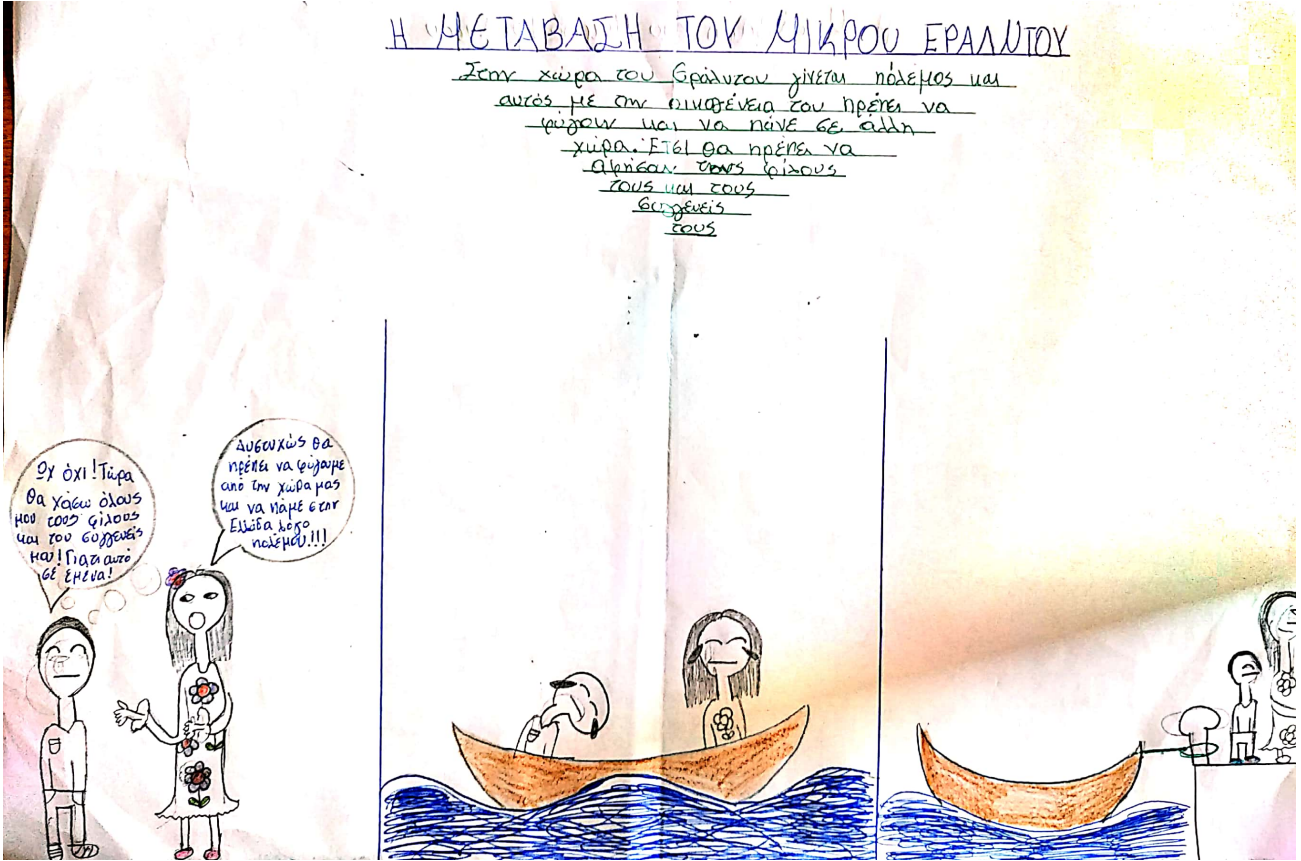 Η ΜΕΤΑΒΑΣΗ ΤΟΥ ΜΙΚΡΟΥ ΕΡΑΛΝΤΟΥ
Στην χώρα του Εράλντου γίνεται πόλεμος και
αυτός με την οικογένεια του πρέπει να
φύγουν και να πάνε σε άλλη
χώρα. Έτσι θα πρέπει να
αφήσουν τους φίλους
τους και τους
συγγενείς
τους
Ωχ όχι! Τώρα
θα χάσω όλους
μου τους φίλους
και του συγγενείς
μου! Γιατι αυτό
σε έμενα!
Δυστυχώς θα
πρέπει να φύγουμε
από την χώρα μας
και να πάμε στην
Ελλάδα λόγο
πολέμου!!!